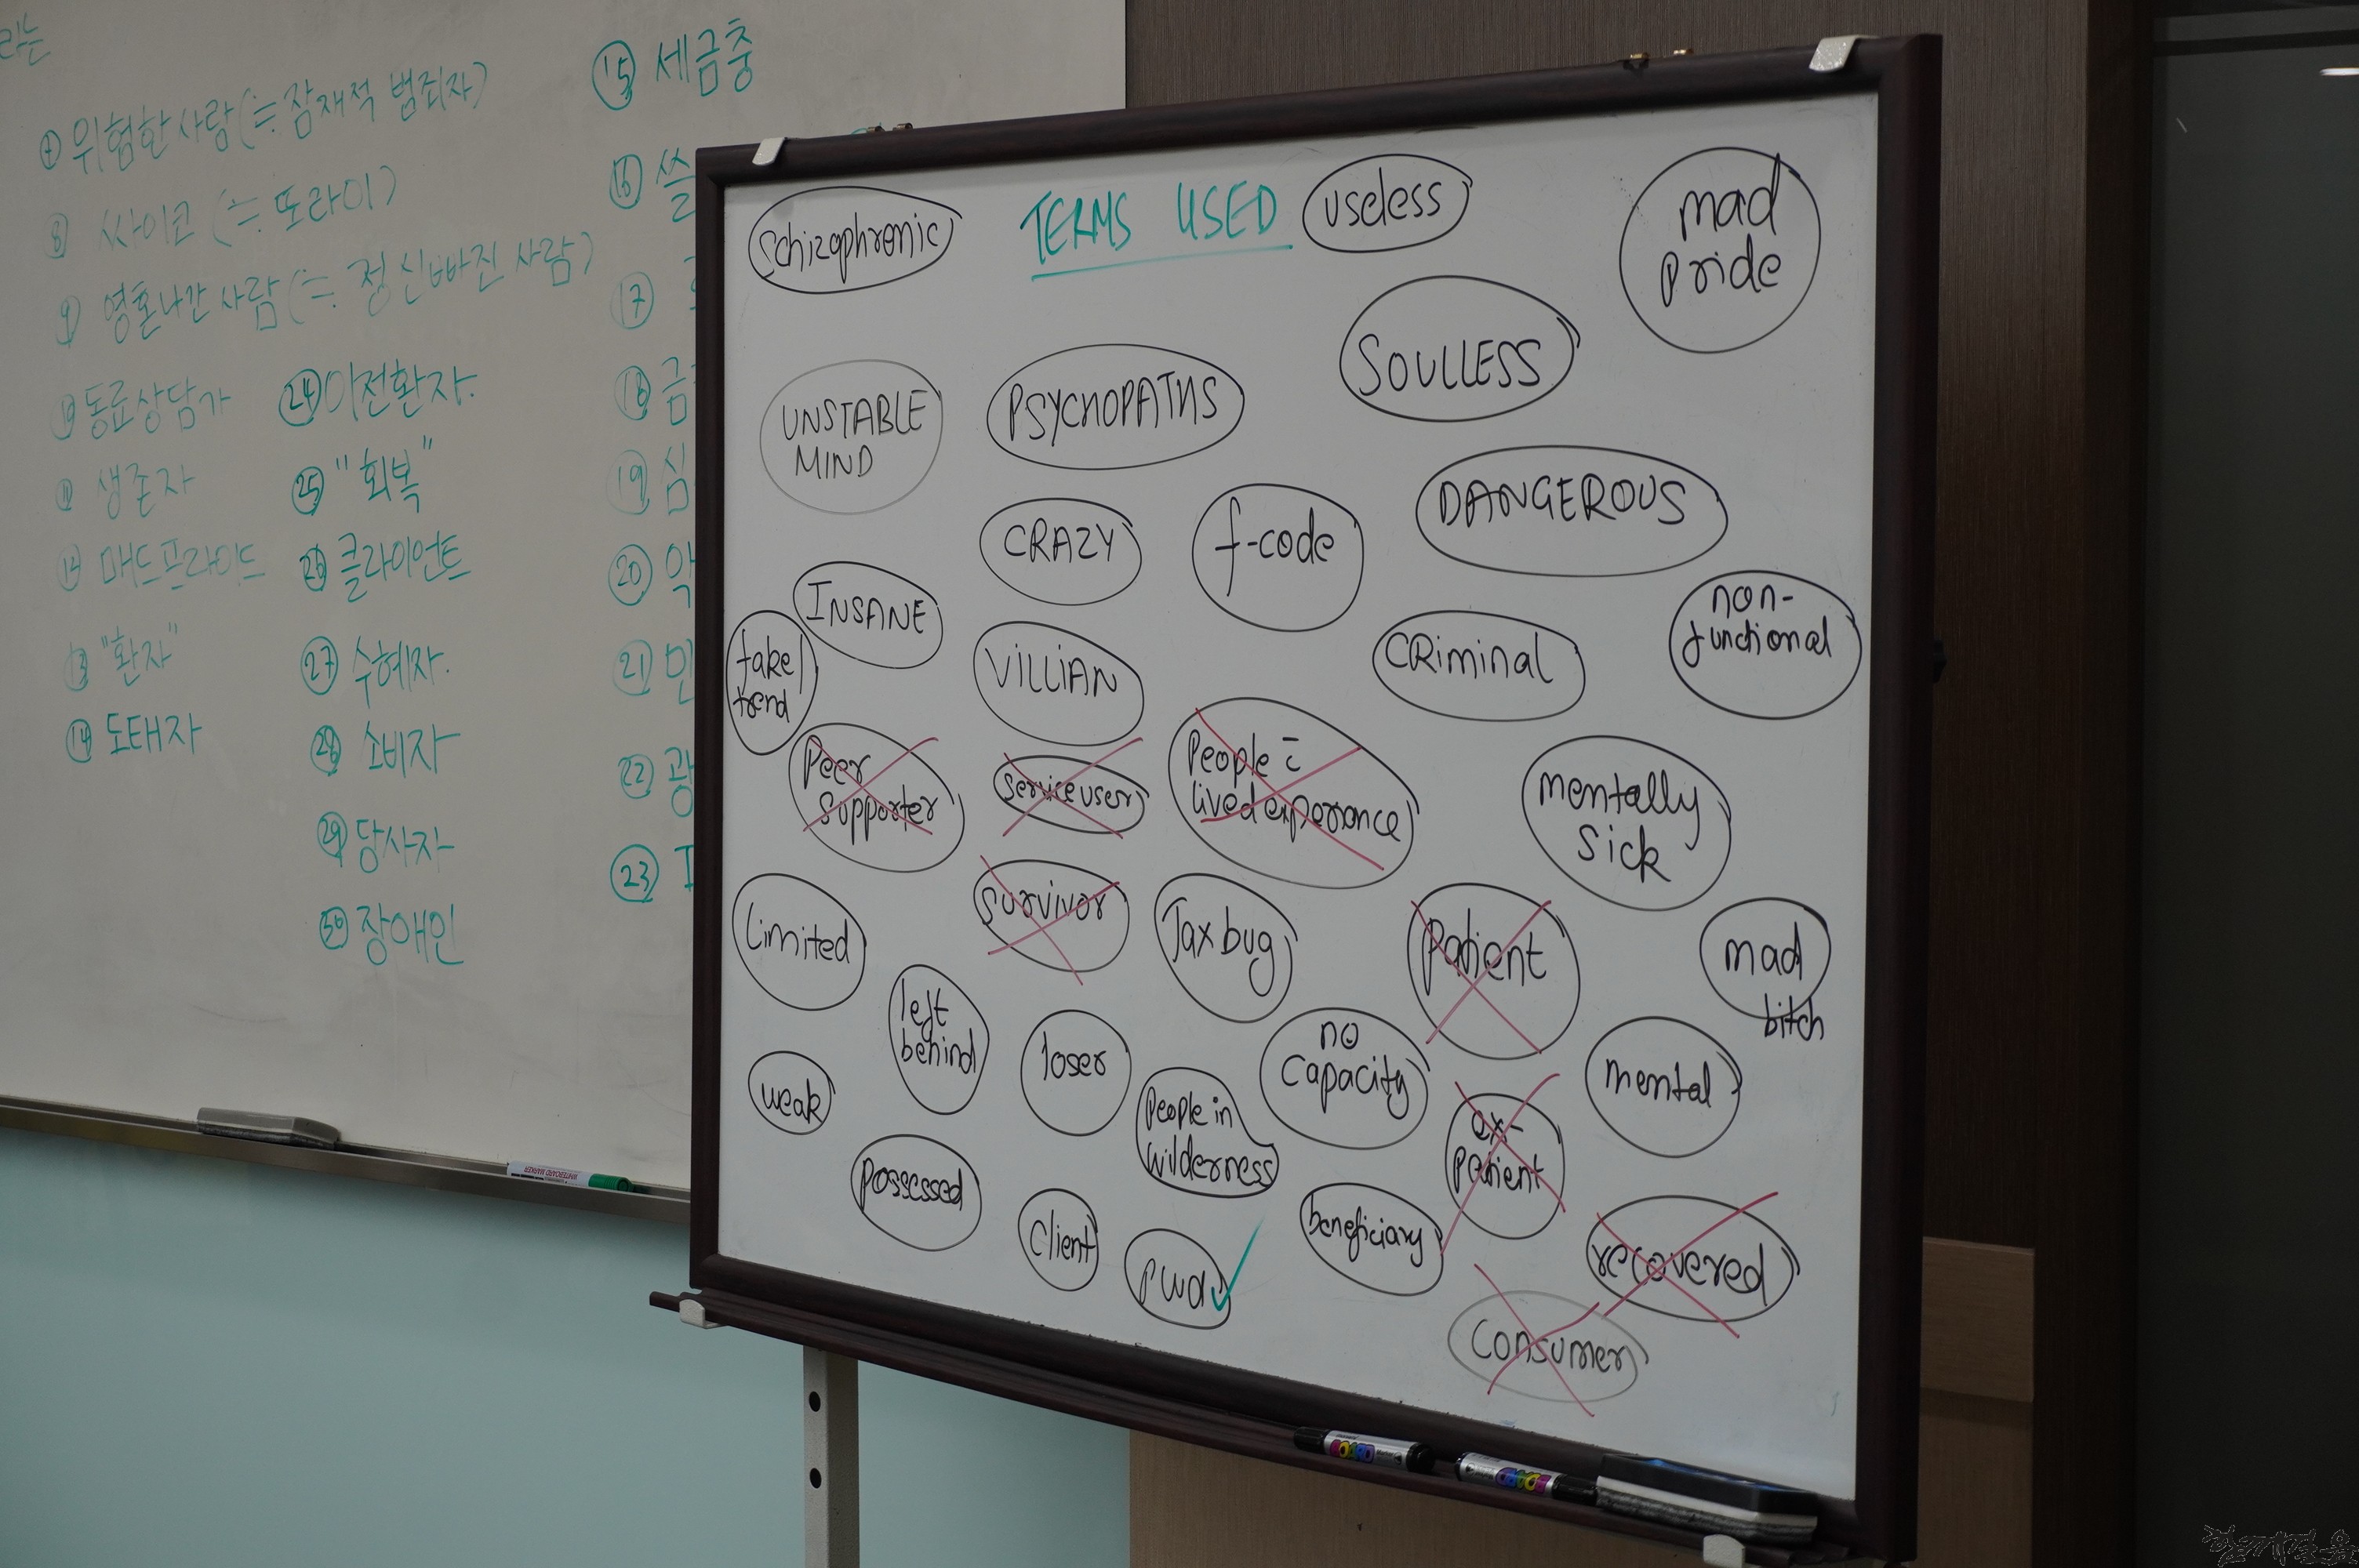 ⑦ 위험한 사람(≒ 잠재적 범죄자)
⑧ 싸이코 (≒ 또라이)
⑨ 영혼나간 사람(≒ 정신빠진 사람)
⑩ 동료상담가
⑪ 생존자
⑫ 매드프라이드
⑬ "환자"
⑭ 도태자
㉔ 이전환자.
㉕ "회복"
㉖ 클라이언트
㉗ 수혜자.
㉘ 소비자
㉙ 당사자
㉚ 장애인
⑮ 세금충
⑯ 쓸
⑰
⑱ 금
⑲ 심
⑳ 악
㉑
㉒ 광
㉓
TERMS USED
schizophronic
useless
mad
pride
SOULLESS
UNSTABLE
MIND
PSYCHOPATHS
DANGEROUS
CRAZY
f-code
INSANE
non-
functional
fake
trend
VILLIAN
CRiminal
Peer
Supporter
Service user
People c̄
lived experience
mentally
Sick
limited
Survivor
Tax bug
Patient
mad
bitch
left
behind
loser
no
Capacity
mental
weak
People in
wilderness
ex-
patient
possessed
Client
pwd
beneficiary
recovered
Consumer
WHITEBOARD MARKER